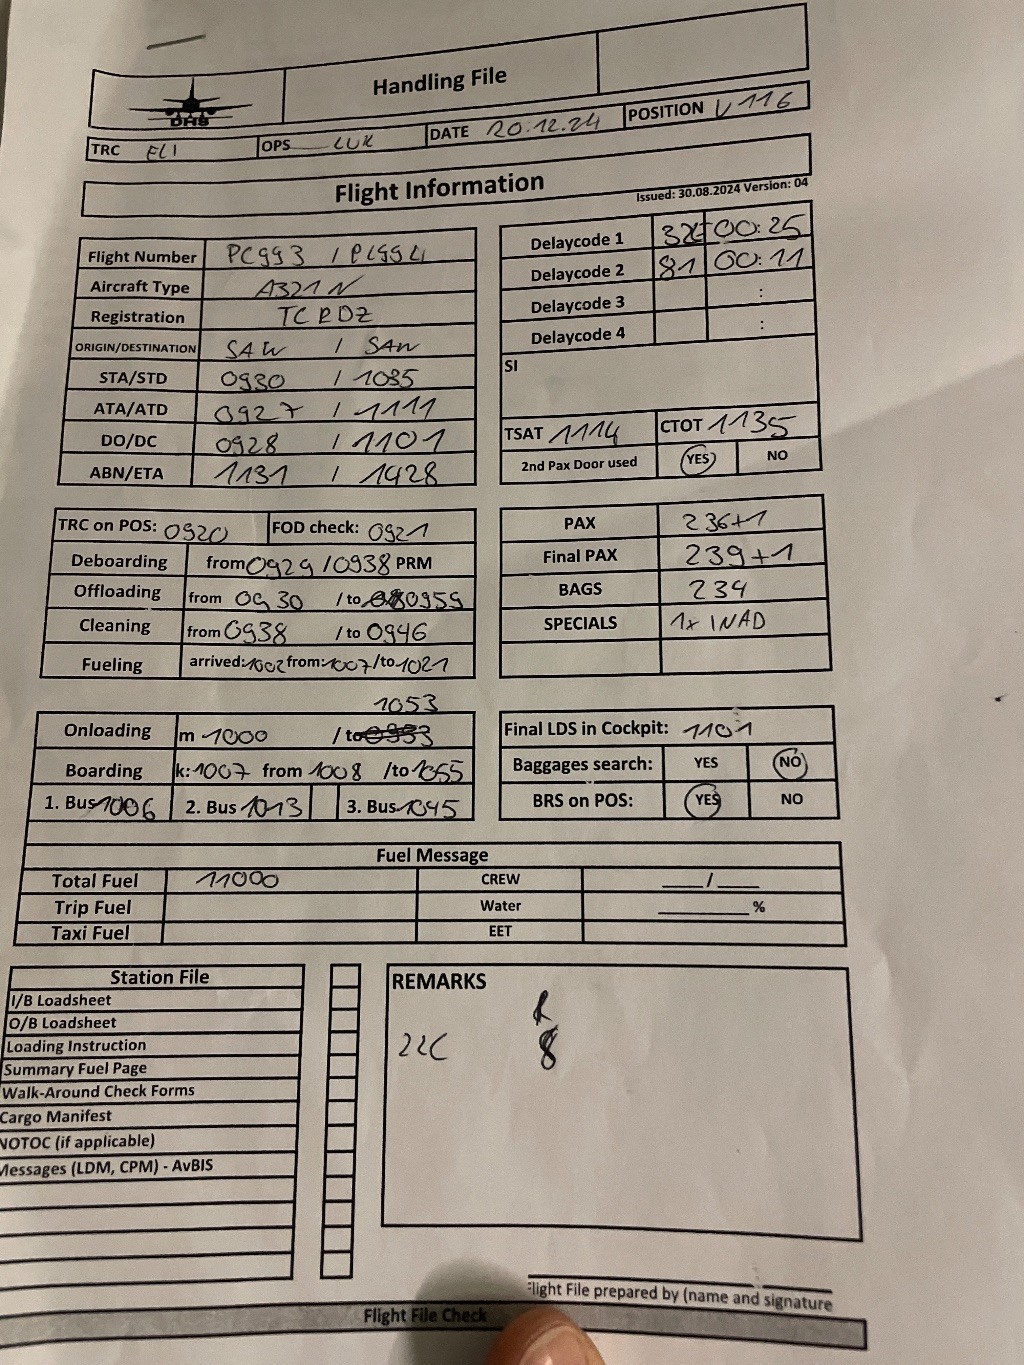 DHS
Handling File
TRC ELI OPS LUK DATE 20.12.24 POSITION V116
Flight Information
Issued: 30.08.2024 Version: 04
Flight Number PC993 / PC994
Aircraft Type A321N
Registration TC RDZ
ORIGIN/DESTINATION SAW / SAW
STA/STD 0930 / 1035
ATA/ATD 0927 / 1111
DO/DC 0928 / 1101
ABN/ETA 1131 / 1428
Delaycode 1 32 00:25
Delaycode 2 81 00:11
Delaycode 3 :
Delaycode 4 :
SI
TSAT 1114 CTOT 1135
2nd Pax Door used YES NO
TRC on POS: 0920 FOD check: 0921
Deboarding from 0929 / 0938 PRM
Offloading from 0930 / to 0959
Cleaning from 0938 / to 0946
Fueling arrived: 1002 from: 1007 /to 1021
PAX 236+1
Final PAX 239+1
BAGS 234
SPECIALS 1x INAD
1053
Onloading m 1000 / to
Boarding k: 1007 from 1008 /to 1055
1. Bus 1006 2. Bus 1013 3. Bus 1045
Final LDS in Cockpit: 1101
Baggages search: YES NO
BRS on POS: YES NO
Fuel Message
Total Fuel 11000 CREW ___/___
Trip Fuel Water ________%
Taxi Fuel EET
Station File
I/B Loadsheet
O/B Loadsheet
Loading Instruction
Summary Fuel Page
Walk-Around Check Forms
Cargo Manifest
NOTOC (if applicable)
Messages (LDM, CPM) - AvBIS
REMARKS
22C 8
Flight File prepared by (name and signature
Flight File Check